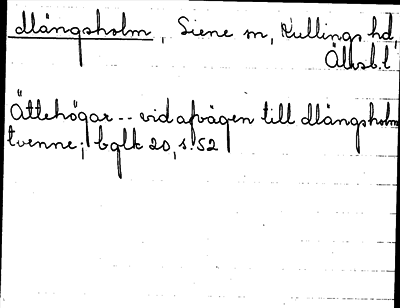 Mångsholm, Siene sn, Kullings hd,
Älvsb.l
Ättehögar -- vid afvägen till Mångsholm
tvenne; bglk 20, s. 52